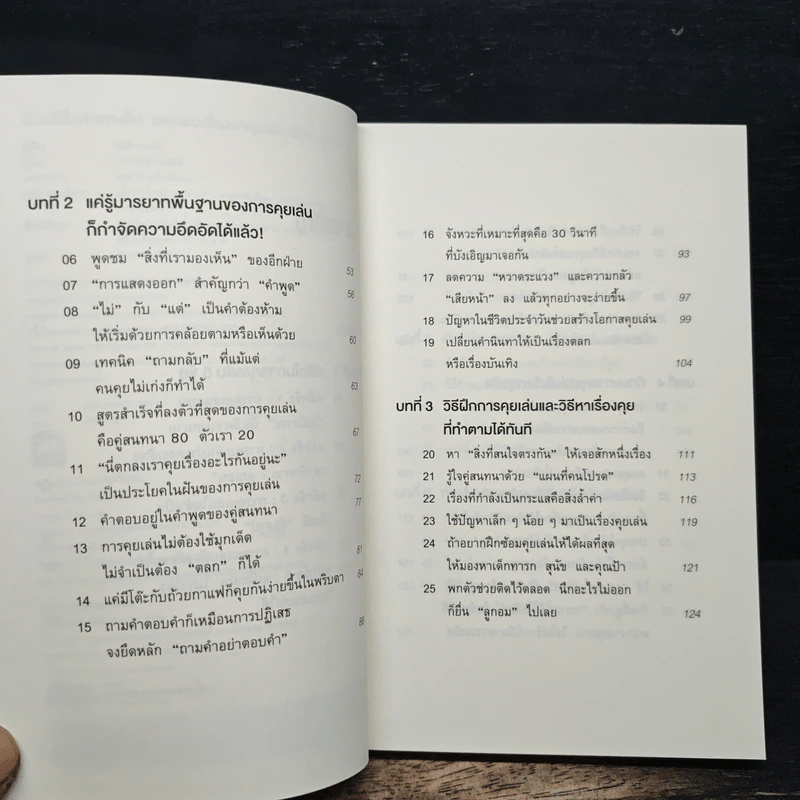 บทที่ 2 แค่รู้มารยาทพื้นฐานของการคุยเล่น
ก็กำจัดความอึดอัดได้แล้ว!
06 พูดชม “สิ่งที่เรามองเห็น” ของอีกฝ่าย 53
07 “การแสดงออก” สำคัญกว่า “คำพูด” 56
08 “ไม่” กับ “แต่” เป็นคำต้องห้าม
ให้เริ่มด้วยการคล้อยตามหรือเห็นด้วย 60
09 เทคนิค “ถามกลับ” ที่แม้แต่
คนคุยไม่เก่งก็ทำได้ 63
10 สูตรสำเร็จที่ลงตัวที่สุดของการคุยเล่น
คือคู่สนทนา 80 ตัวเรา 20 67
11 “นี่ตกลงเราคุยเรื่องอะไรกันอยู่นะ”
เป็นประโยคในฝันของการคุยเล่น 72
12 คำตอบอยู่ในคำพูดของคู่สนทนา 77
13 การคุยเล่นไม่ต้องใช้มุกเด็ด
ไม่จำเป็นต้อง “ตลก” ก็ได้ 81
14 แค่มีโต๊ะกับถ้วยกาแฟก็คุยกันง่ายขึ้นในพริบตา 84
15 ถามคำตอบคำก็เหมือนการปฏิเสธ
จงยึดหลัก “ถามคำอย่าตอบคำ” 88
16 จังหวะที่เหมาะที่สุดคือ 30 วินาที
ที่บังเอิญมาเจอกัน 93
17 ลดความ “หวาดระแวง” และความกลัว
“เสียหน้า” ลง แล้วทุกอย่างจะง่ายขึ้น 97
18 ปัญหาในชีวิตประจำวันช่วยสร้างโอกาสคุยเล่น 99
19 เปลี่ยนคำนินทาให้เป็นเรื่องตลก
หรือเรื่องบันเทิง 104
บทที่ 3 วิธีฝึกการคุยเล่นและวิธีหาเรื่องคุย
ที่ทำตามได้ทันที
20 หา “สิ่งที่สนใจตรงกัน” ให้เจอสักหนึ่งเรื่อง 111
21 รู้ใจคู่สนทนาด้วย “แผนที่คนโปรด” 113
22 เรื่องที่กำลังเป็นกระแสคือสิ่งล้ำค่า 116
23 ใช้ปัญหาเล็ก ๆ น้อย ๆ มาเป็นเรื่องคุยเล่น 119
24 ถ้าอยากฝึกซ้อมคุยเล่นให้ได้ผลที่สุด
ให้มองหาเด็กทารก สุนัข และคุณป้า 121
25 พกตัวช่วยติดไว้ตลอด นึกอะไรไม่ออก
ก็ยื่น “ลูกอม” ไปเลย 124